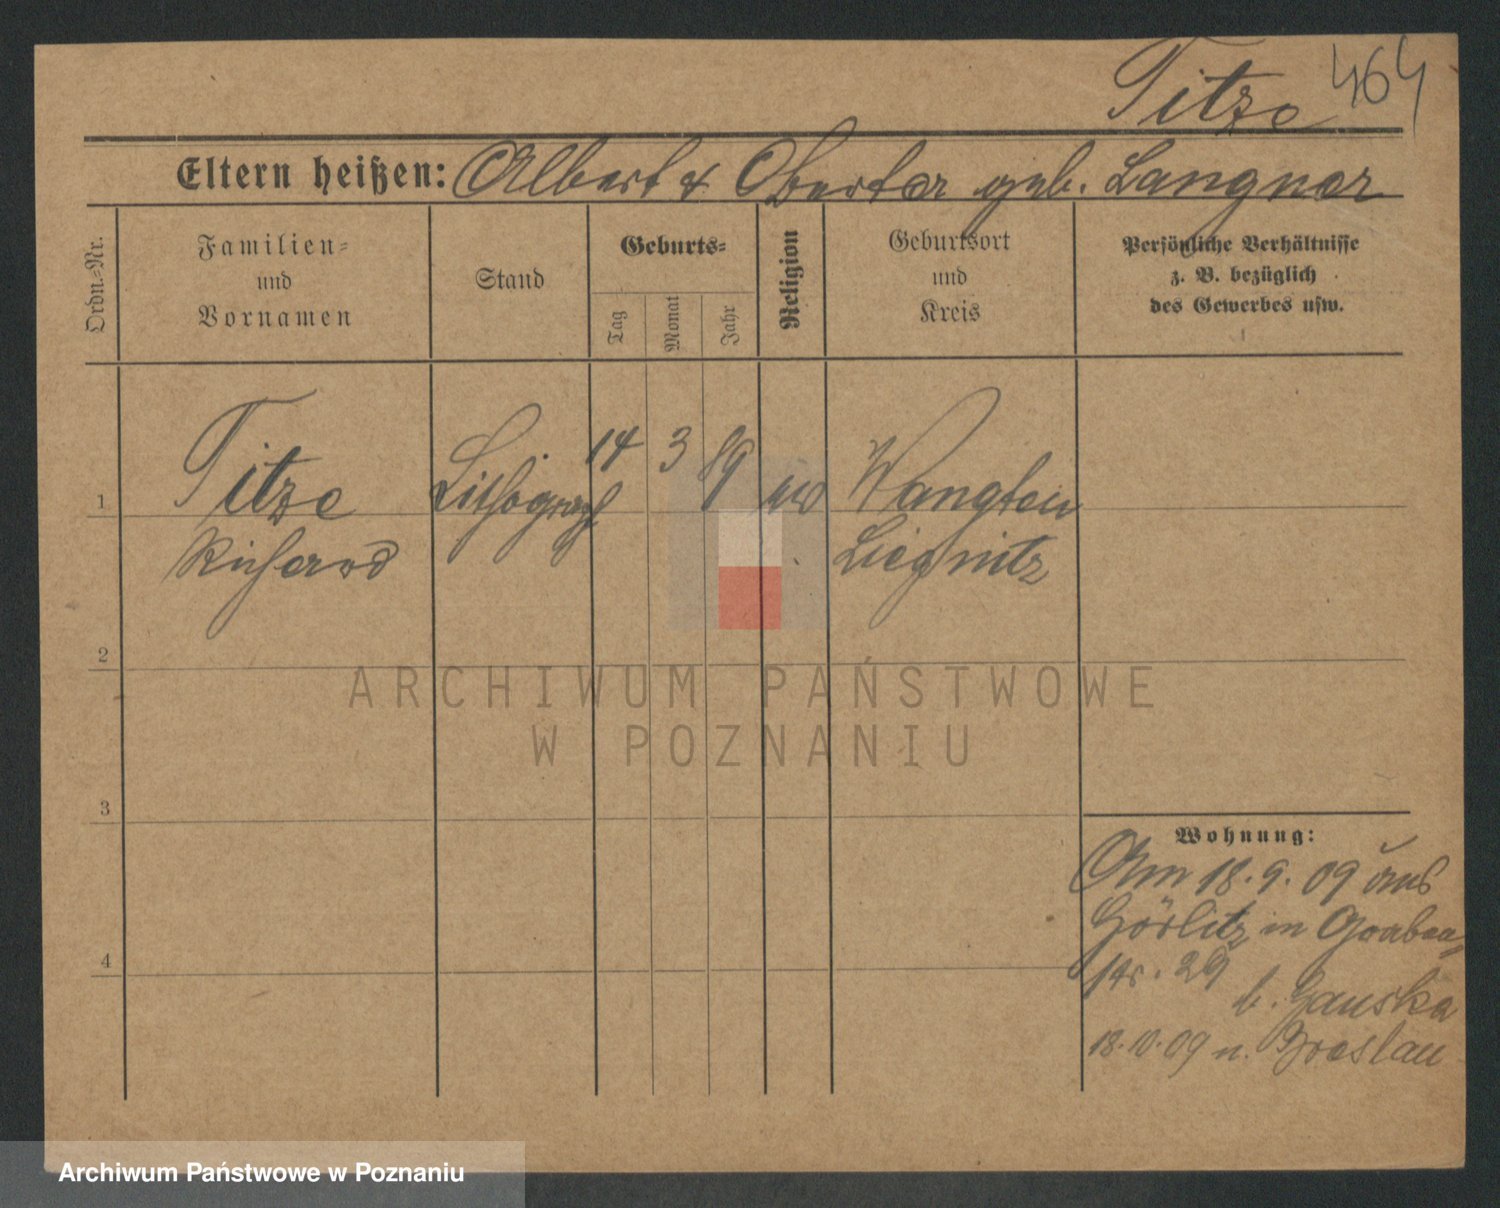 Titze 464
Eltern heißen: Albert & geb. Langner
Ordn.=Nr.
Familien=
und
Vornamen
Stand
Geburts=
Tag
Monat
Jahr
Religion
Geburtsort
und
Kreis
Persönliche Verhältnisse
z. B. bezüglich
des Gewerbes usw.
1
Titze
Richard
Lithograph
14 3 89
Wangten
Liegnitz
2
3
4
Wohnung:
Am 18.9.09 aus
Görlitz in Graben=
str. 29
b. Gauska
18.10.09 n. Breslau
ARCHIWUM PAŃSTWOWE
W POZNANIU
Archiwum Państwowe w Poznaniu